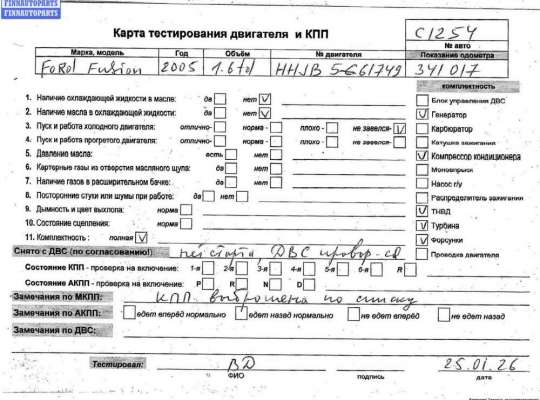 FINNAUTOPARTS
FINNAUTOPARTS
Карта тестирования двигателя и КПП
C1254
№ авто
Марка, модель Год Объём № двигателя Показание одометра
Ford Fusion 2005 1.6td HHJB 341017
комплектность
1. Наличие охлаждающей жидкости в масле: да нет V
2. Наличие масла в охлаждающей жидкости: да нет V
3. Пуск и работа холодного двигателя: отлично- норма - плохо - не завелся- V
4. Пуск и работа прогретого двигателя: отлично- норма - плохо - не завелся-
5. Давление масла: есть нет
6. Картерные газы из отверстия масляного щупа: да нет
7. Наличие газов в расширительном бачке: да нет
8. Посторонние стуки или шумы при работе: да нет
9. Дымность и цвет выхлопа: норма
10. Состояние сцепления: норма
11. Комплектность : полная V
Блок управления ДВС
V Генератор
Карбюратор
Катушка зажигания
V Компрессор кондиционера
Моновпрыск
Насос г/у
Распределитель зажигания
V ТНВД
V Турбина
V Форсунки
Проводка двигателя
Снято с ДВС (по согласованию!) нет старта, ДВС провор-ся
Состояние КПП - проверка на включение: 1-я 2-я 3-я 4-я 5-я 6-я R
Состояние АКПП - проверка на включение: P R N D
Замечания по МКПП: КПП выброшена по списку
Замечания по АКПП: едет вперёд нормально едет назад нормально не едет вперёд не едет назад
Замечания по ДВС:
Тестировал: ВД 25.01.26
ФИО подпись дата